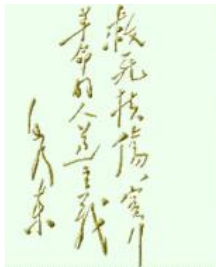 救死扶傷,实行
革命的人道主义
毛泽东